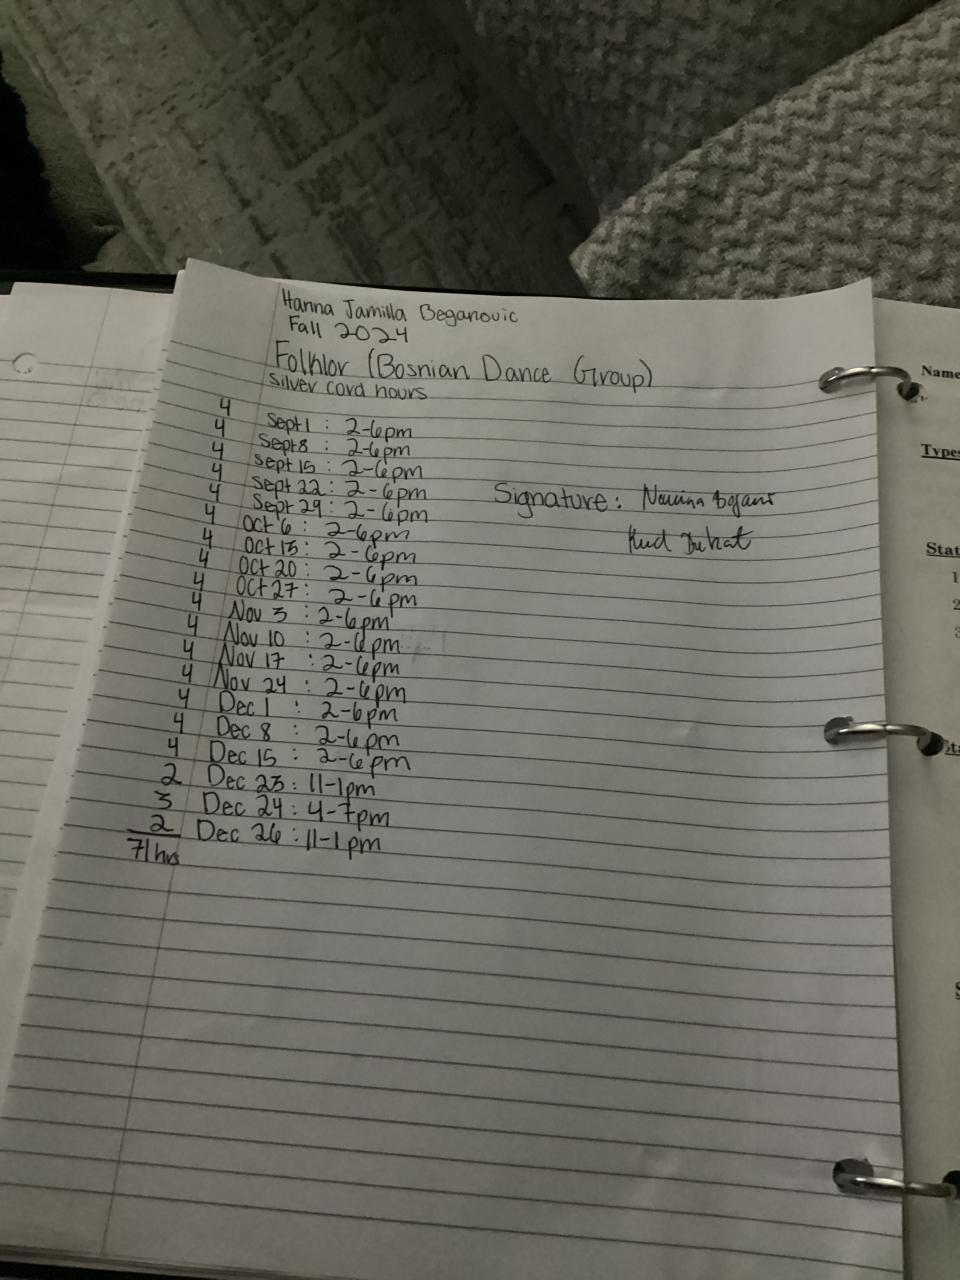 Hanna Jamilla Beganovic
Fall 2024
Folklor (Bosnian Dance Group)
silver cord hours
4 Sept 1 : 2-6pm
4 Sept 8 : 2-6pm
4 Sept 15 : 2-6pm
4 Sept 22 : 2-6pm
4 Sept 29 : 2-6pm
4 Oct 6 : 2-6pm
4 Oct 13 : 2-6pm
4 Oct 20 : 2-6pm
4 Oct 27 : 2-6pm
4 Nov 3 : 2-6pm
4 Nov 10 : 2-6pm
4 Nov 17 : 2-6pm
4 Nov 24 : 2-6pm
4 Dec 1 : 2-6pm
4 Dec 8 : 2-6pm
4 Dec 15 : 2-6pm
2 Dec 23 : 11-1pm
3 Dec 24 : 4-7pm
2 Dec 26 : 11-1pm
71hrs
Signature:
Name
Types
Stat
1
2
3